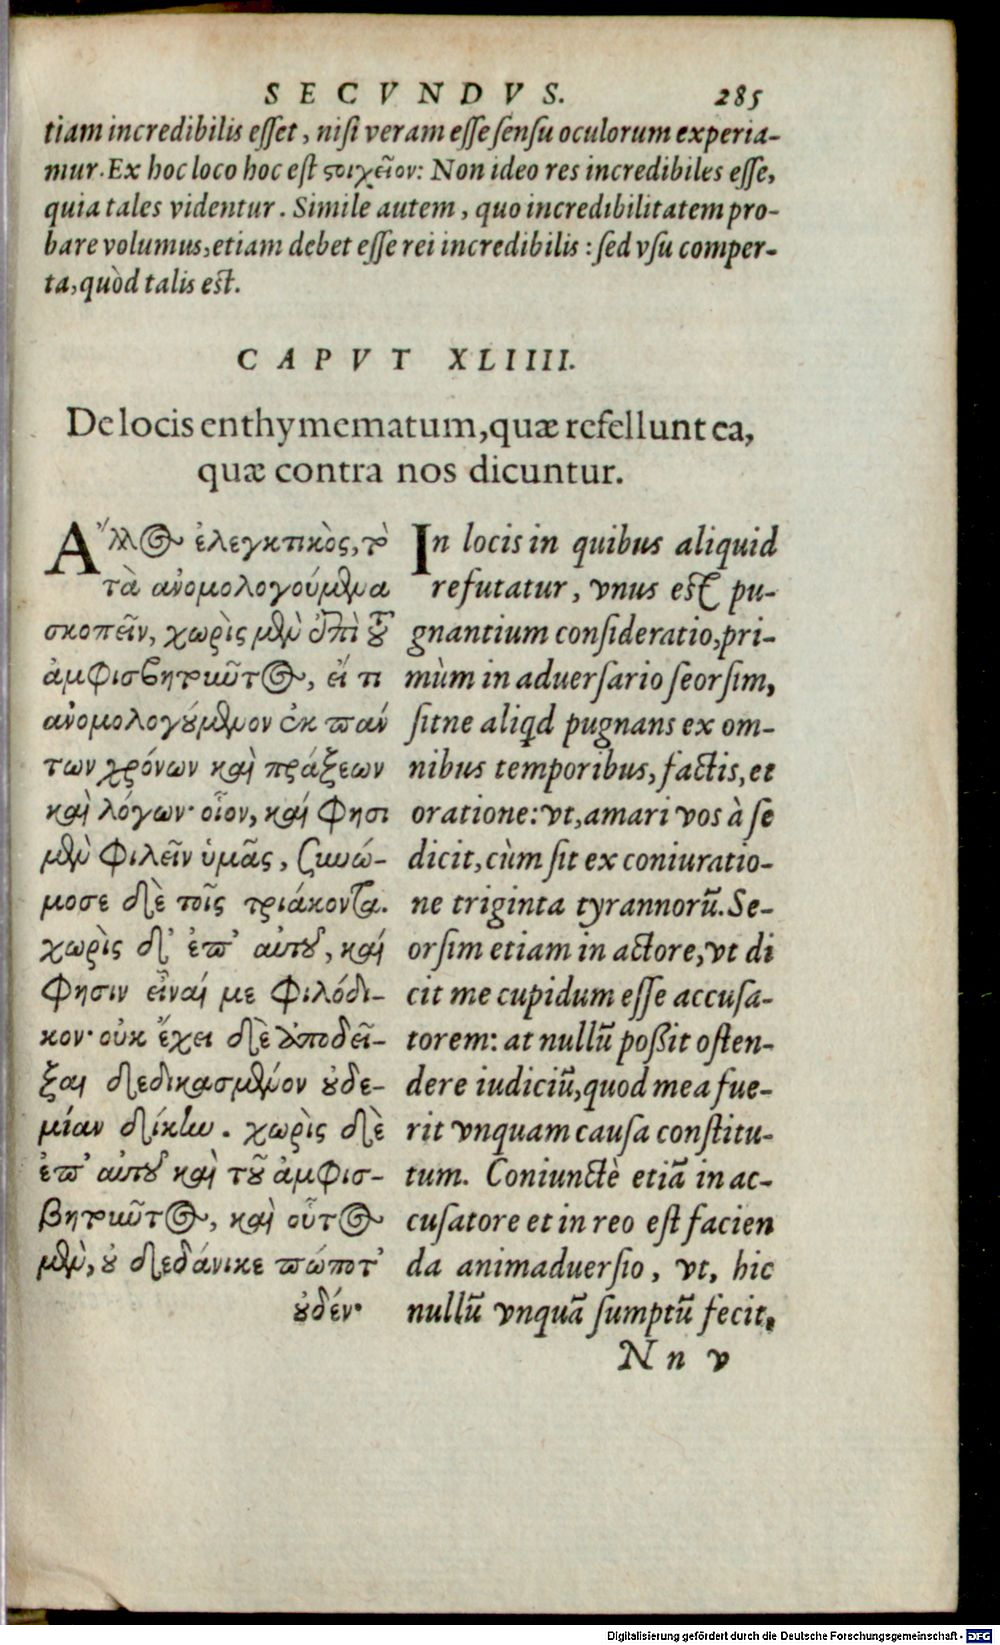 SECVNDVS. 285
tiam incredibilis esset, nisi veram esse sensu oculorum experia-
mur. Ex hoc loco hoc est ςοιχεῖον: Non ideo res incredibiles esse,
quia tales videntur. Simile autem, quo incredibilitatem pro-
bare volumus, etiam debet esse rei incredibilis: sed vsu comper-
ta, quòd talis est.
CAPVT XLIIII.
De locis enthymematum, quæ refellunt ea,
quæ contra nos dicuntur.
Ἄλλος ἐλεγκτικὸς, τὸ
τὰ ἀνομολογούμενα
σκοπεῖν, χωρὶς μὲν ἐπὶ τοῦ
ἀμφισβητοῦντος, εἴ τι
ἀνομολογούμενον ἐκ πάν
των χρόνων καὶ πράξεων
καὶ λόγων· οἷον, καί φησι
μὲν φιλεῖν ὑμᾶς, συνώ-
μοσε δὲ τοῖς τριάκοντα.
χωρὶς δ' ἐπ' αὐτοῦ, καί
φησιν εἶναί με φιλόδι-
κον· οὐκ ἔχει δὲ ἀποδεῖ-
ξαι δεδικασμένον οὐδε-
μίαν δίκην. χωρὶς δὲ
ἐπ' αὐτοῦ καὶ τοῦ ἀμφισ-
βητοῦντος, καὶ οὗτος
μὲν, οὐ δεδάνικε πώποτ'
οὐδέν·
In locis in quibus aliquid
refutatur, vnus est pu-
gnantium consideratio, pri-
mùm in aduersario seorsim,
sitne aliqd pugnans ex om-
nibus temporibus, factis, et
oratione: vt, amari vos à se
dicit, cùm sit ex coniuratio-
ne triginta tyrannorū. Se-
orsim etiam in actore, vt di
cit me cupidum esse accusa-
torem: at nullū poßit osten-
dere iudiciū, quod mea fue-
rit vnquam causa constitu-
tum. Coniunctè etiā in ac-
cusatore et in reo est facien
da animaduersio, vt, hic
nullū vnquā sumptū fecit,
Nn v
Digitalisierung gefördert durch die Deutsche Forschungsgemeinschaft - DFG